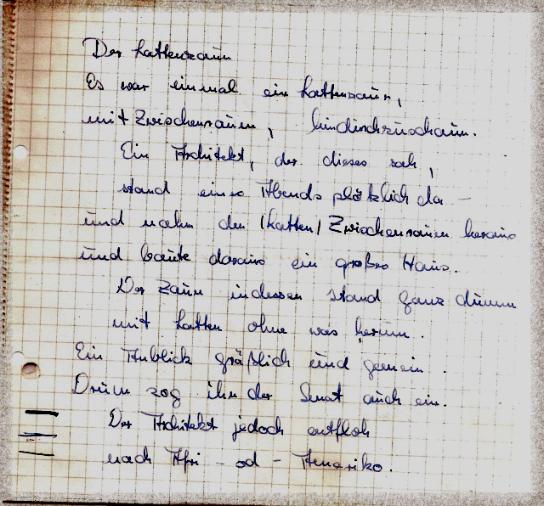 Der Lattenzaun
Es war einmal ein Lattenzaun,
mit Zwischenraum, hindurchzuschaun.
Ein Architekt, der dieses sah,
stand eines Abends plötzlich da -
und nahm den (Latten) Zwischenraum heraus
und baute daraus ein großes Haus.
Der Zaun indessen stand ganz dumm
mit Latten ohne was herum.
Ein Anblick gräßlich und gemein.
Drum zog ihn der Senat auch ein.
Der Architekt jedoch entfloh
nach Afri - od - Ameriko.